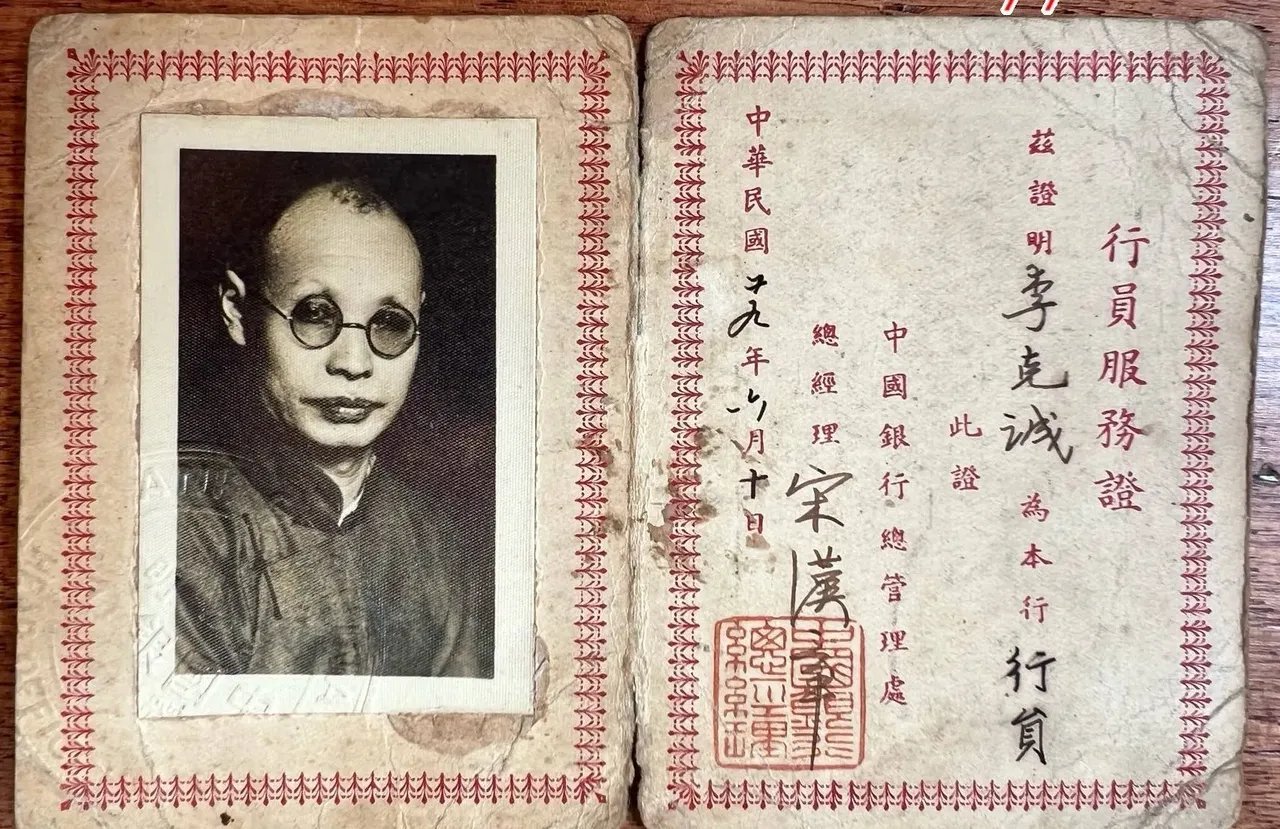 行員服務證
茲證明李克誠為本行行員
此證
中國銀行總管理處
總經理宋漢章
中華民國廿九年六月十日